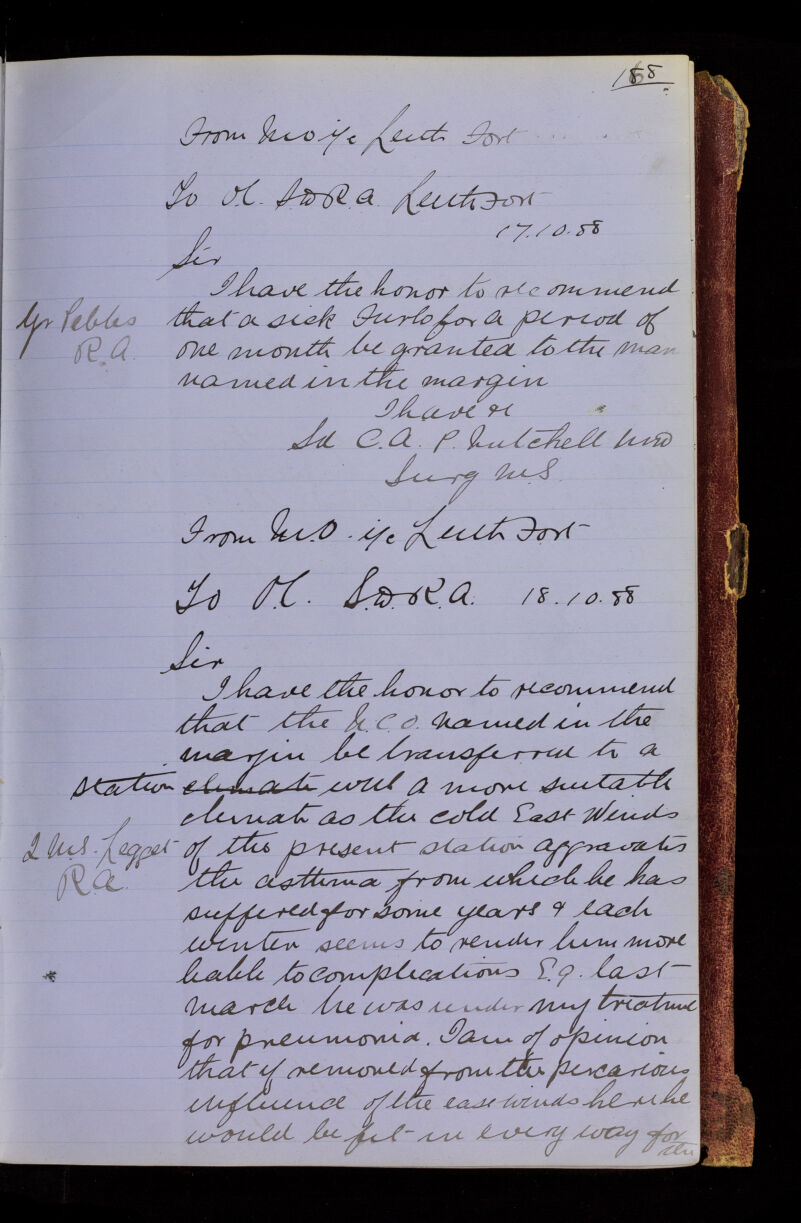 188
From MO i/c Leith Fort
To OC. S.D.R.A. Leith Fort
17.10.88
Sir
I have the honor to recommend
Gr Pebbles that a sick Furlo for a period of
R.A. one month be granted to the man
named in the margin
I have &c
Sd C.A.P. Mitchell MD
Surg M.S.
From M.O. i/c Leith Fort
To O.C. S.D.R.A. 18.10.88
Sir
I have the honor to recommend
that the N.C.O. named in the
margin be transferred to a
station climate with a more suitable
climate as the cold East Winds
2 M.S. Legget of the present station aggravates
R.A. the asthma from which he has
suffered for some years & each
winter seems to render him more
liable to complications E.g. last
march he was under my treatme
for pneumonia. I am of opinion
that if removed from the percarious
influence of the east winds here he
would be fit in every way for
the